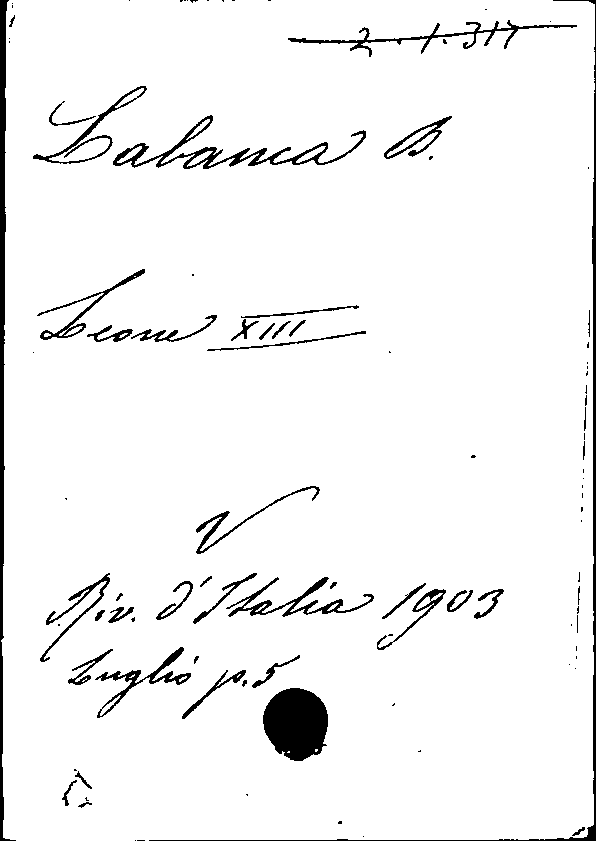 2.1.317
Labanca B.
Leone XIII
V
Riv. d'Italia 1903
Luglio p.5